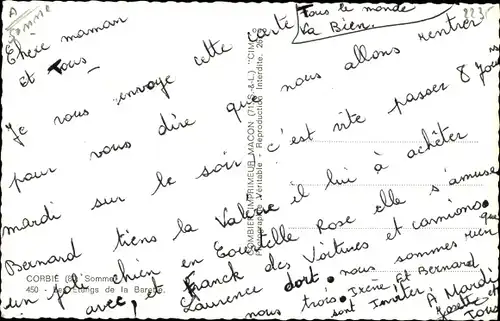 A
Somme
223
Tous le monde
Va Bien.
Chère maman
et Tous
Je vous envoye cette carte
pour vous dire que
mardi sur le soir
Bernard tiens la Valérie
un joli chien en
avec, et Franck des Voitures et camions.
Laurence dort.
nous allons rentrer
c'est vite passer 8 Jours
il lui à achêter
Rose elle s'amuse
nous sommes rien que
nous trois. Irène Et Bernard
sont Inviter.
A Mardi
Josette et
Tous
COMBIER IMPRIMEUR MACON (71 S.-&-L.) "CIM"
Photographie Véritable - Reproduction Interdite.
CORBIE (80 Somme)
450 - Les Etangs de la Barette.